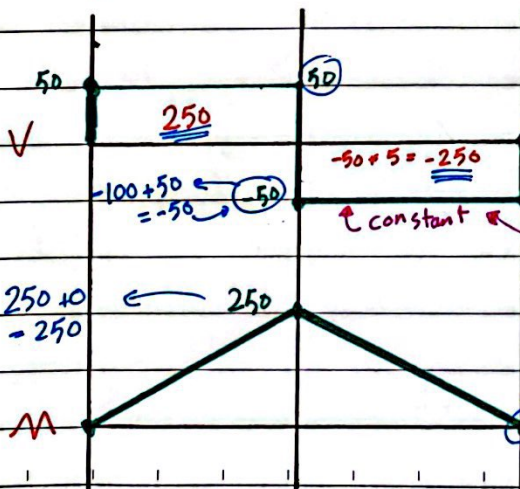 50
50
250
V
-50 * 5 = -250
-100+50
= -50
-50
constant
250 +0
= 250
250
M